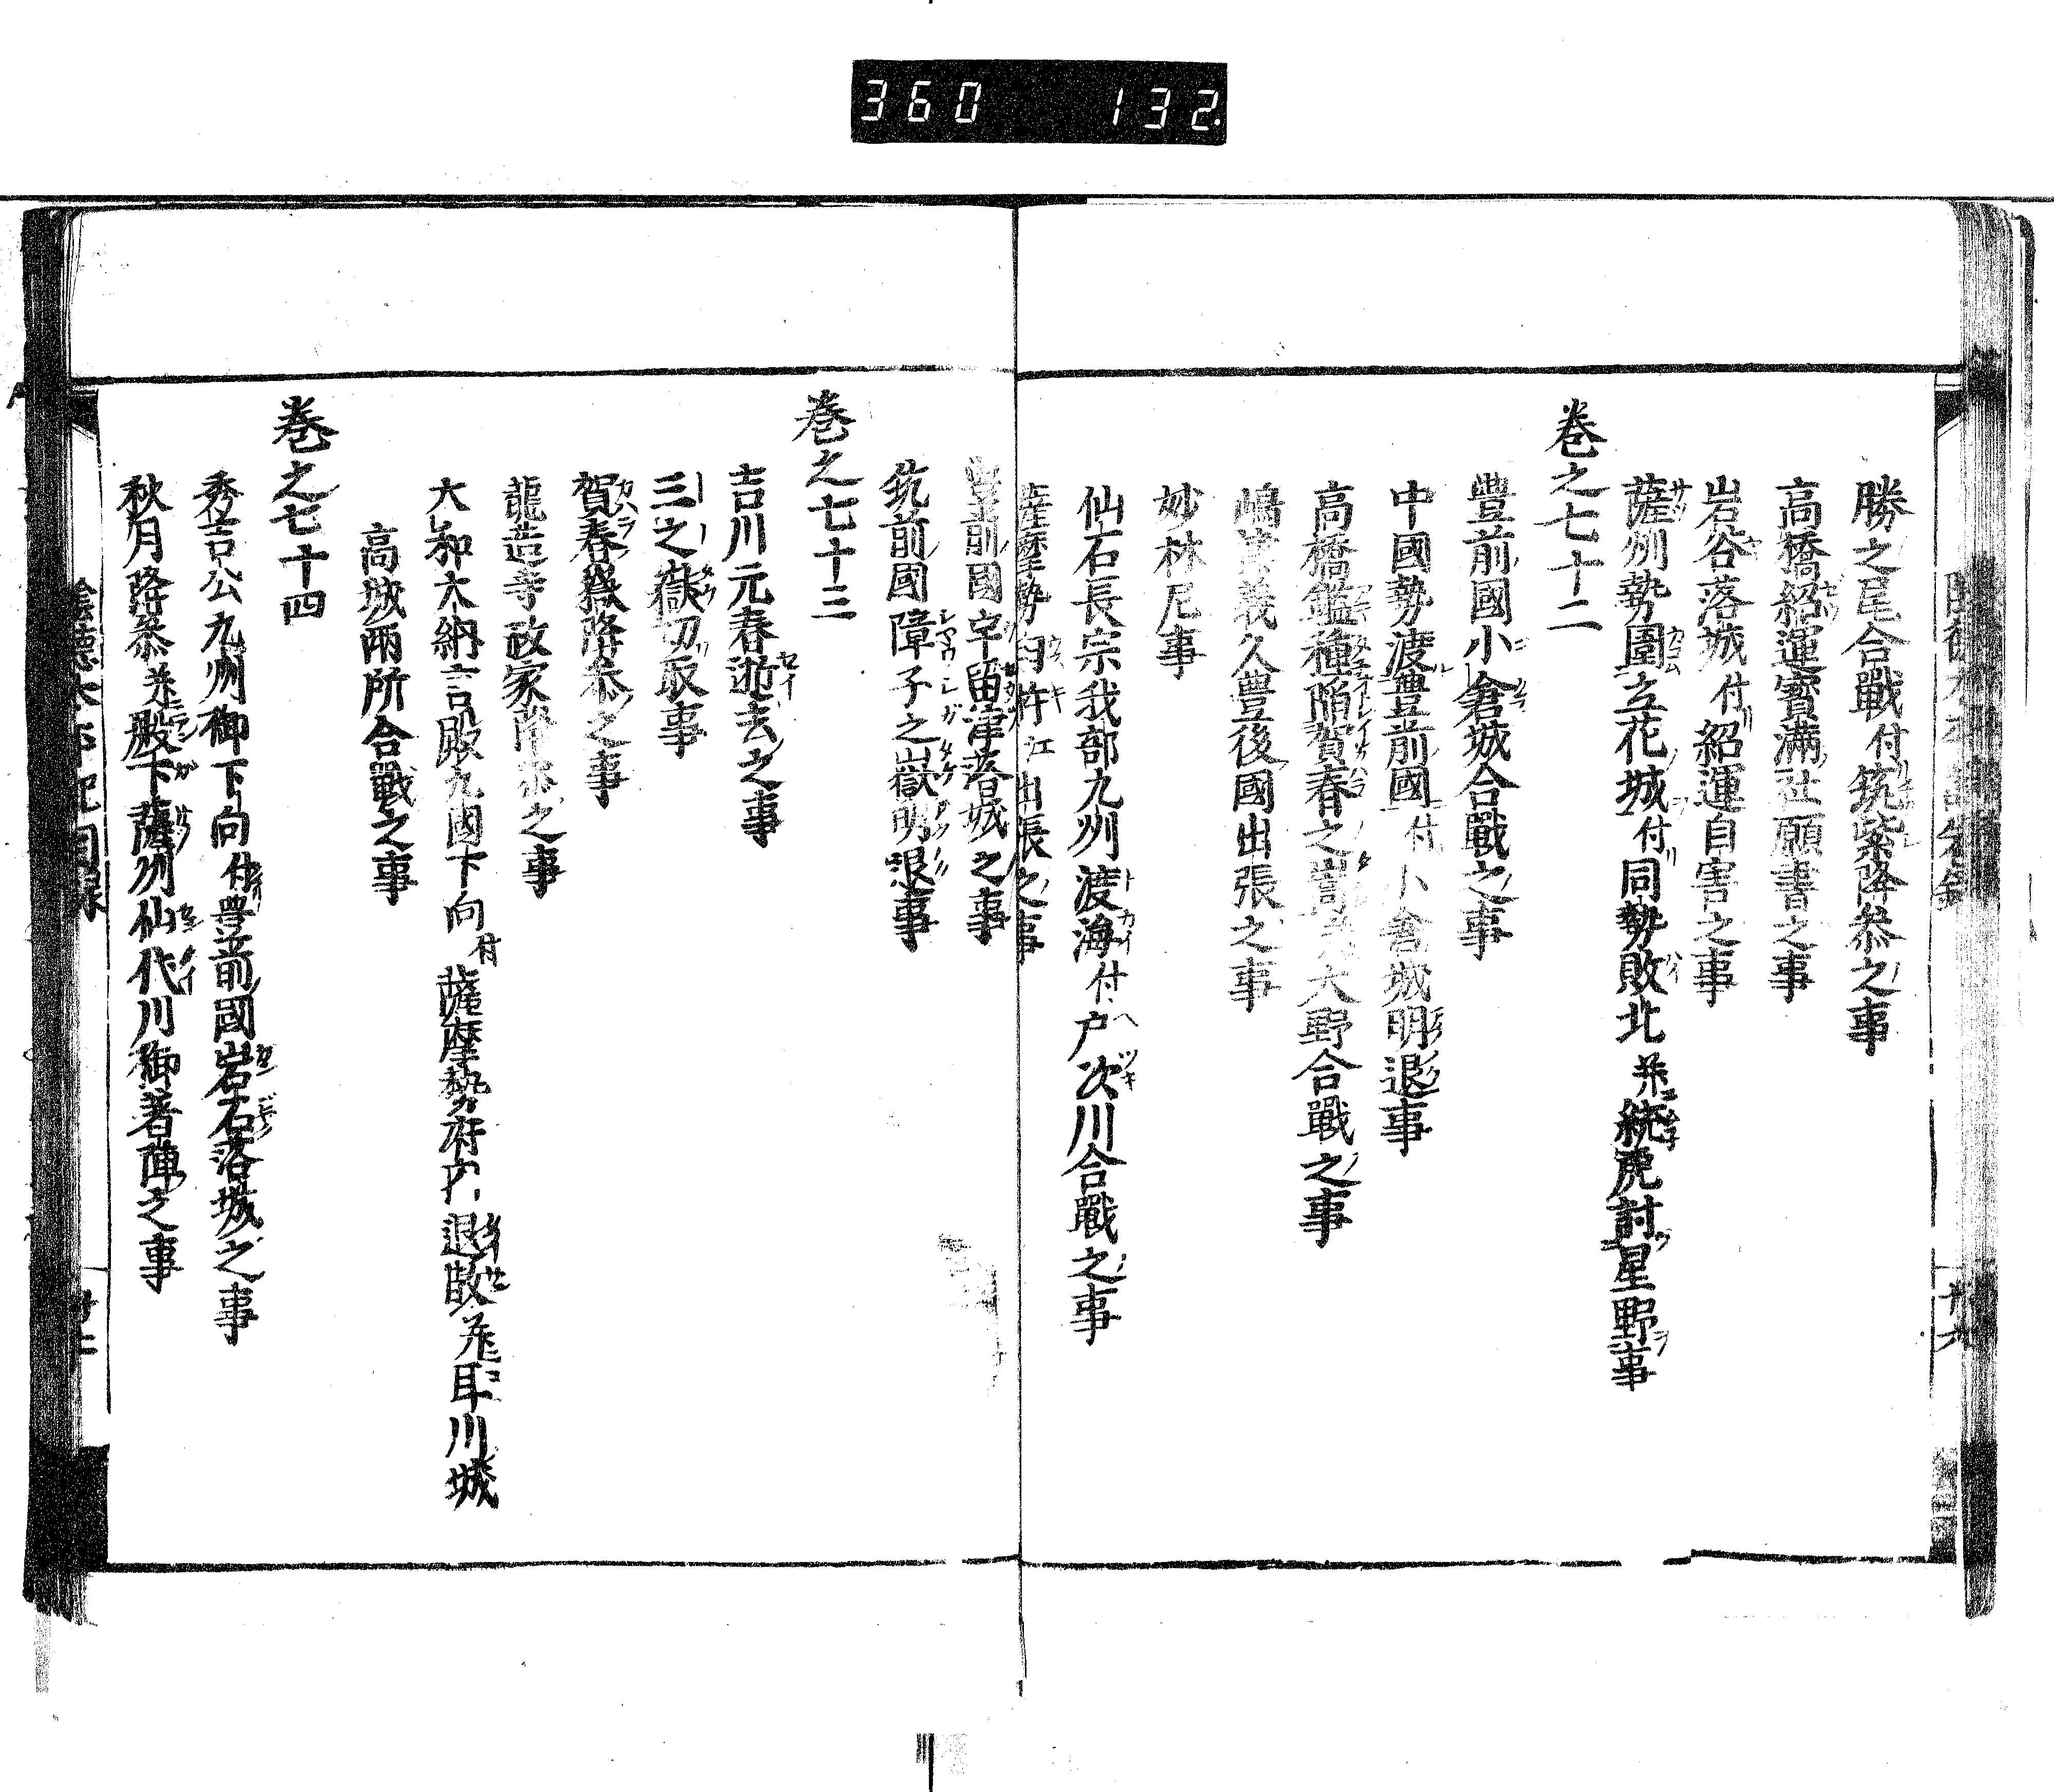 360 132
勝之尾合戰付筑紫降参之事
高橋紹運寳滿社願書之事
岩谷落城付紹運自害之事
薩州勢圍立花城付同勢敗北并統虎討星野事
巻之七十二
豊前國小倉城合戰之事
中國勢渡豊前國付小倉城明退事
高橋鑑種陥賀春之嵩并大野合戰之事
嶋津義久豊後國出張之事
妙林尼事
仙石長宗我部九州渡海付户次川合戰之事
薩摩勢臼杵江出張之事
豊前國宇留津落城之事
筑前國障子之嶽明退事
巻之七十三
吉川元春逝去之事
三之嶽切取事
賀春嶽降参之事
龍造寺政家降参之事
大和大納言殿九國下向付薩摩勢府内退散并耳川城
高城兩所合戰之事
巻之七十四
秀吉公九州御下向付豊前國岩石落城之事
秋月降参并殿下薩州仙代川御著陣之事
陰徳太平記目録
廿二